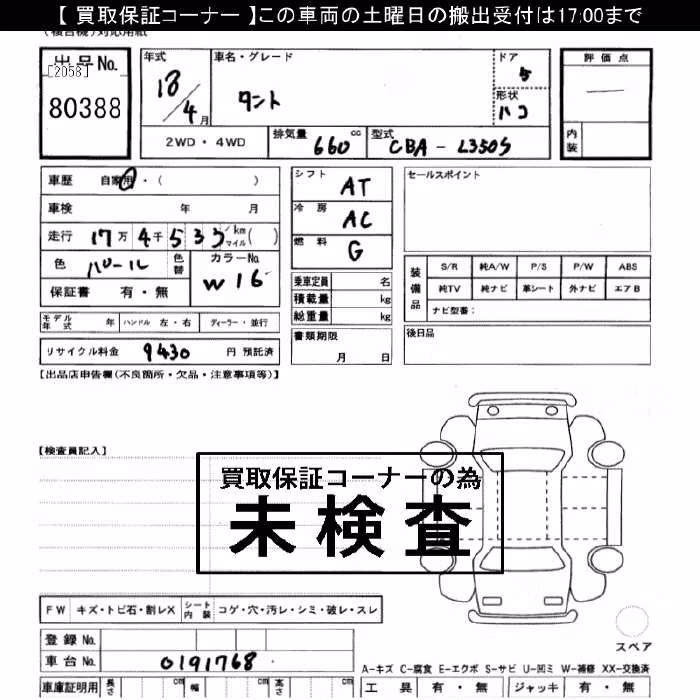 【 買取保証コーナー 】この車両の土曜日の搬出受付は17:00まで
(複合機)対応用紙
出品No.
[2058]
80388
年式
18/4月
車名・グレード
タント
ドア
5
形状
ハコ
評価点
—
内装
2WD・4WD
排気量 660 cc
型式 CBA - L350S
車歴 自家用・( )
車検 年 月
走行 17万4千533 km マイル( )
色 パール
色替
カラーNo. W16
保証書 有・無
モデル年式 年 ハンドル 左・右 ディーラー・並行
リサイクル料金 9430 円 預託済
シフト AT
冷房 AC
燃料 G
乗車定員 名
積載量 kg
総重量 kg
書類期限
月 日
セールスポイント
装備品
S/R 純A/W P/S P/W ABS
純TV 純ナビ 革シート 外ナビ エアB
ナビ型番：
後日品
【出品店申告欄(不良箇所・欠品・注意事項等)】
【検査員記入】
買取保証コーナーの為
未検査
FW キズ・トビ石・割レX シート内装 コゲ・穴・汚レ・シミ・破レ・スレ
登録 No.
車台 No. 0191768
車庫証明用 長さ cm 幅 cm 高さ cm
スペア
A-キズ C-腐食 E-エクボ S-サビ U-凹ミ W-補修 XX-交換済
工具 有・無 ジャッキ 有・無